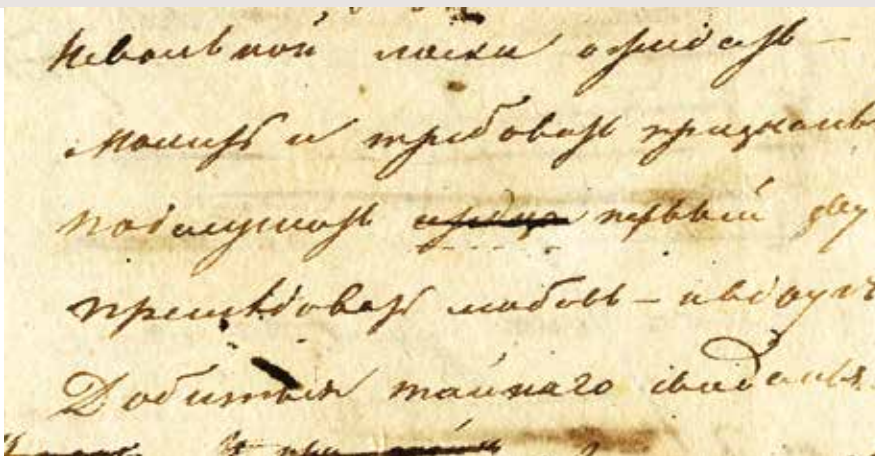 Невольной ласки ожидать –
Молить и требовать признань
подслушать сердца первый зву
преслѣдовать любовь – и вдругъ
Добиться тайнаго свиданья